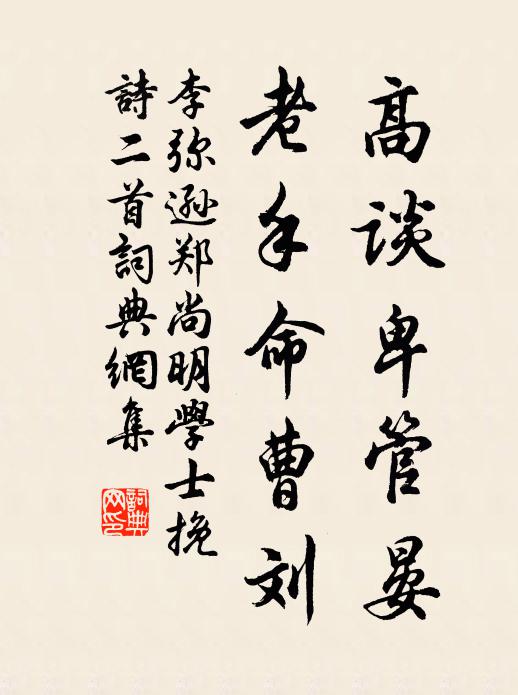 高談卑管晏
老手命曹刘
李弥遜郑尚明學士挽
詩二首詞典網集
詞典网印